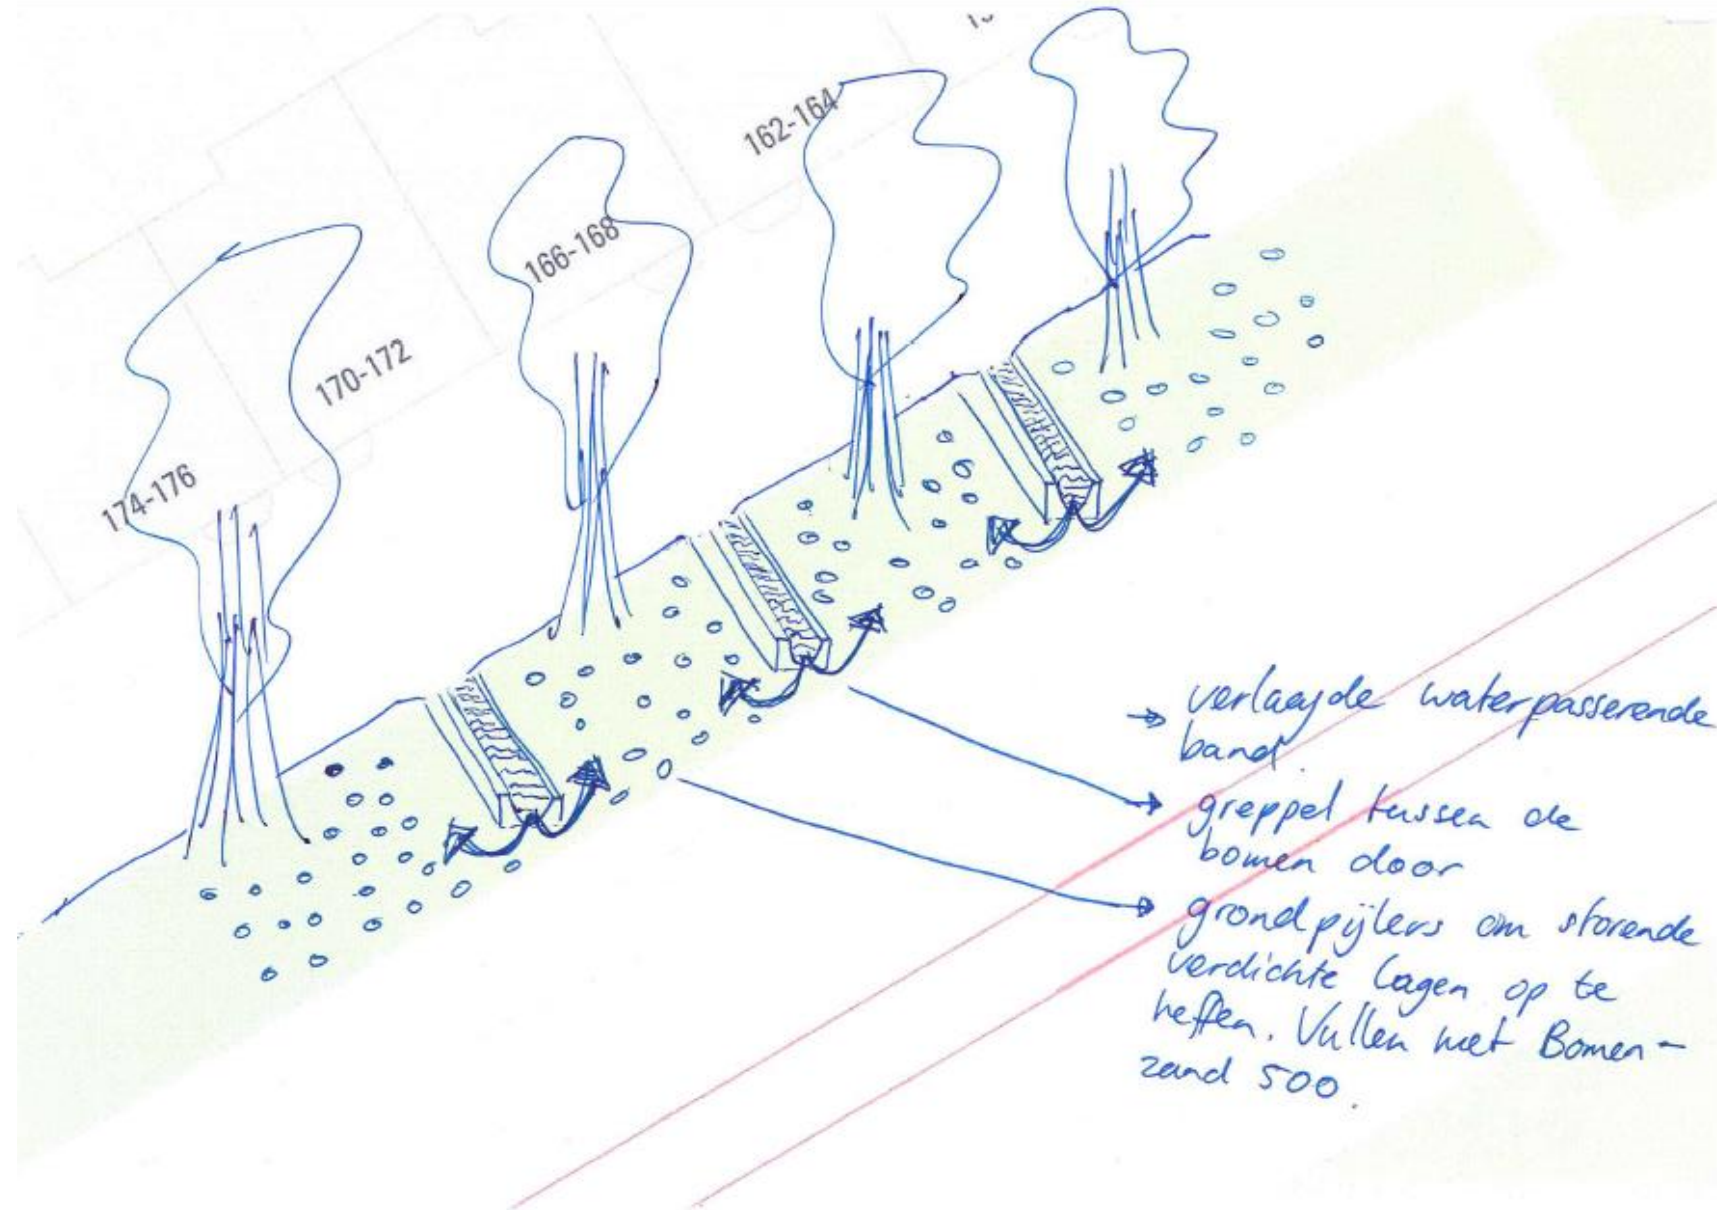 162-164
166-168
170-172
174-176
→ verlaagde waterpasserende
band.
greppel tussen de
bomen door
grondpijlers om storende
verdichte lagen op te
heffen. Vullen met Bomen-
zand 500.